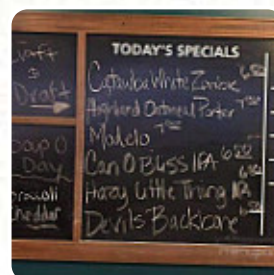 Craft
&
Draft
Soup O
Day
Broccoli
Cheddar
TODAY'S SPECIALS
Catawba White Zombie 6.50
Highland Oatmeal Porter 7.00
Modelo
Can O Bliss IPA 6.50
Hazy Little Thing IPA
Devils Backbone